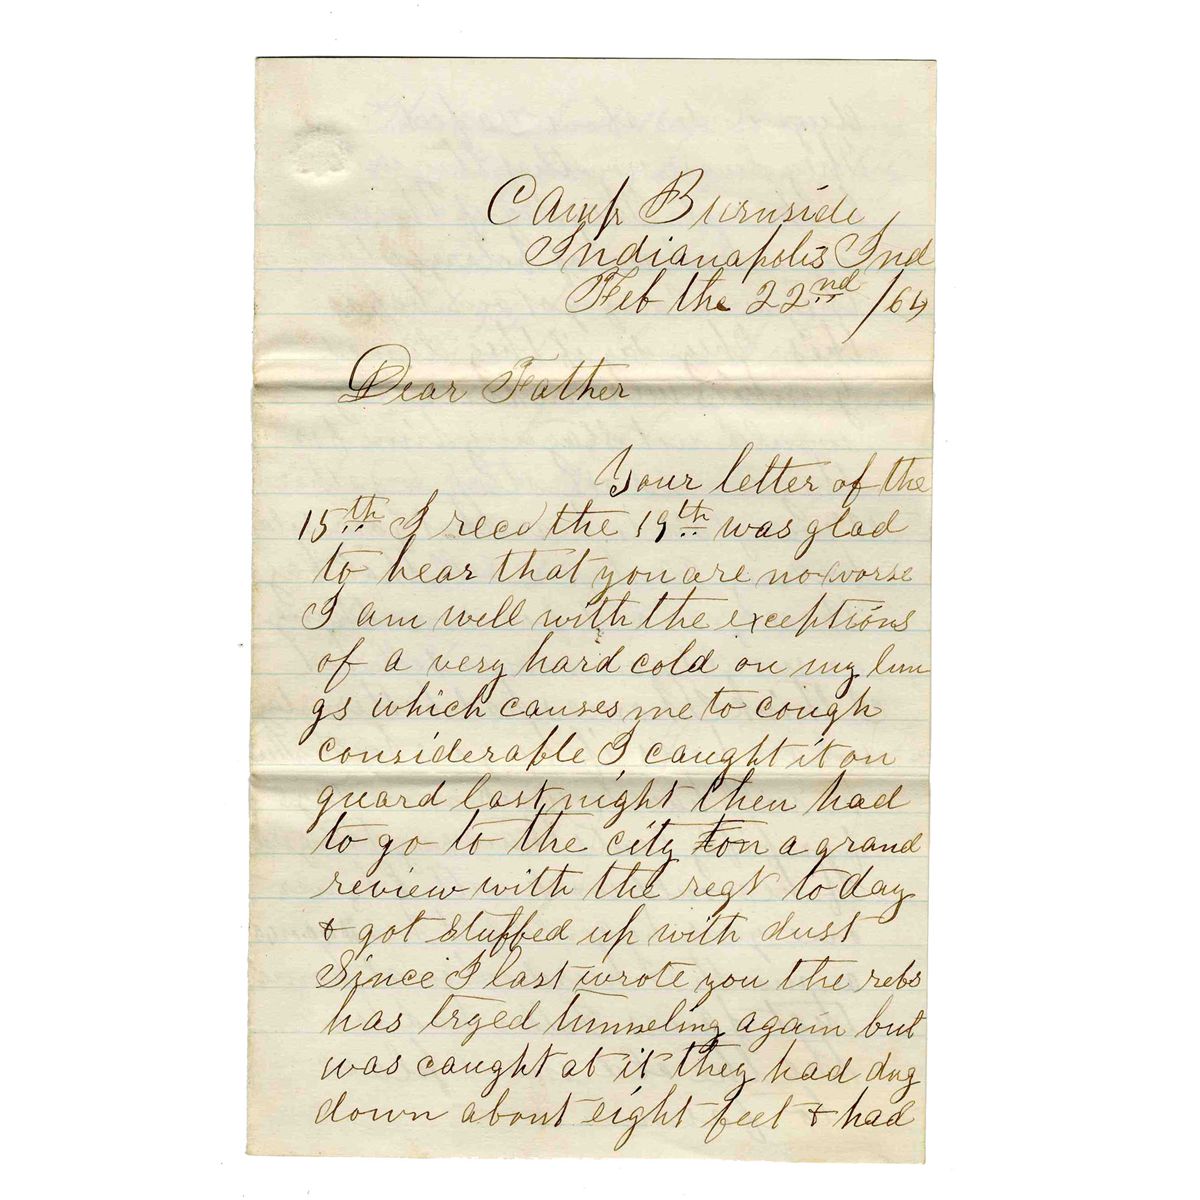 Camp Burnside
Indianapolis Ind
Feb the 22nd /64
Dear Father
Your letter of the
15th I recd the 19th was glad
to hear that you are no worse
I am well with the exceptions
of a very hard cold on my lun
gs which causes me to cough
considerable I caught it on
guard last night then had
to go to the city on a grand
review with the regt to day
& got stuffed up with dust
Since I last wrote you the rebs
has tryed tunneling again but
was caught at it they had dug
down about eight feet & had